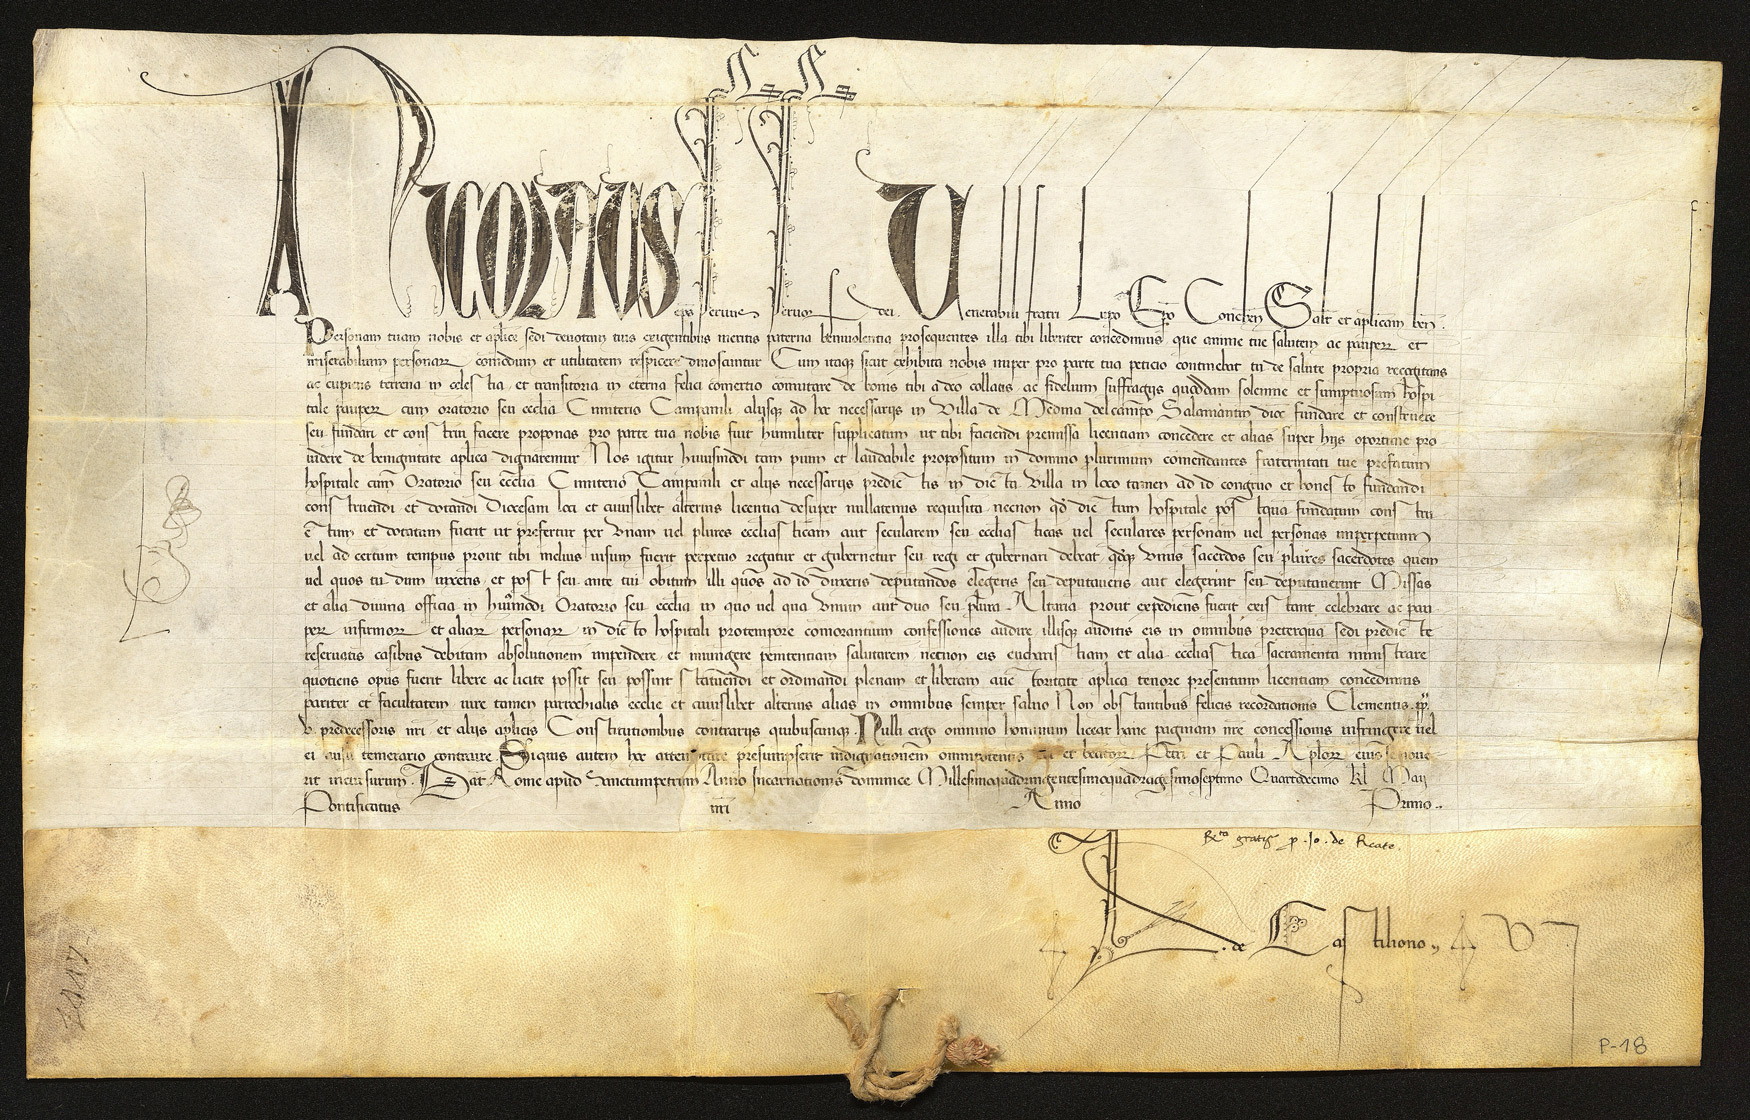 Nicolaus eps servus servor dei. Venerabili fratri Lupo Epo Conchen Salt et aplicam ben.
Personam tuam nobis et aplice sedi devotam tuis exigentibus meritis paterna benivolentia prosequentes illa tibi libenter concedimus que anime tue salutem ac pauperr et
miserabilium personarr comodum et utilitatem respicere dinoscuntur Cum itaque sicut exhibita nobis nuper pro parte tua peticio continebat tu de salute propria recogitans
ac cupiens terrena in celestia et transitoria in eterna felici comertio comutare de bonis tibi a deo collatis ac fidelium suffragiis quoddam solenne et sumptuosum hospi
tale pauperr cum oratorio seu ecclia Cimiterio Campanili aliisque ad hoc necessariis in Villa de Medina del campo Salamantin dioc fundare et construere
seu fundari et construi facere proponas pro parte tua nobis fuit humiliter supplicatum ut tibi faciendi premissa licentiam concedere et alias super hiis oportune pro
videre de benignitate aplica dignaremur Nos igitur huiusmodi tam pium et laudabile propositum in domino plurimum comendantes fraternitati tue prefatum
hospitale cum Oratorio seu ecclia Cimiterio Campanili et aliis necessariis predictis in dicta Villa in loco tamen ad id congruo et honesto fundandi
construendi et dotandi Diocesani loci et cuiuslibet alterius licentia desuper nullatenus requisita necnon qd dictum hospitale postqua fundatum constru
ctum et dotatum fuerit ut prefertur per Unam vel plures ecclesiasticam aut secularem seu ecclesiasticas vel seculares personam vel personas imperpetuum
vel ad certum tempus prout tibi melius visum fuerit perpetuo regatur et gubernetur seu regi et gubernari debeat qdque Unus sacerdos seu plures sacerdotes quem
vel quos tu dum vixeris et post seu ante tui obitum illi quos ad id duxeris deputandos elegeris seu deputaveris aut elegerint seu deputaverint Missas
et alia divina officia in huiusmodi Oratorio seu ecclia in quo vel qua Unum aut duo seu plura Altaria prout expediens fuerit existant celebrare ac pau
perr infirmorr et aliarr personarr in dicto hospitali protempore comorantium confessiones audire illisque auditis eis in omnibus preterqua sedi predicte
reservatis casibus debitam absolutionem impendere et iniungere penitentiam salutarem necnon eis eucharistiam et alia ecclesiastica sacramenta ministrare
quotiens opus fuerit libere ac licite possit seu possint statuendi et ordinandi plenam et liberam auctoritate aplica tenore presentium licentiam concedimus
pariter et facultatem iure tamen parrochialis ecclie et cuiuslibet alterius alias in omnibus semper salvo Non obstantibus felicis recordationis Clementis pp
V predecessoris nri et aliis aplicis Constitutionibus contrariis quibuscunque. Nulli ergo omnino hominum liceat hanc paginam nre concessionis infringere vel
ei ausu temerario contraire Siquis autem hoc attemptare presumpserit indignationem omnipotentis dei et beatorr Petri et Pauli Aplorr eius se nove
rit incursurum. Dat Rome apud Sanctumpetrum Anno Incarnationis dominice Millesimoquadringentesimoquadragesimoseptimo Quartodecimo kl Maii
Pontificatus nri Anno Primo..
Rta gratis p .Jo. de Reate.
. de Castiliono
P-18